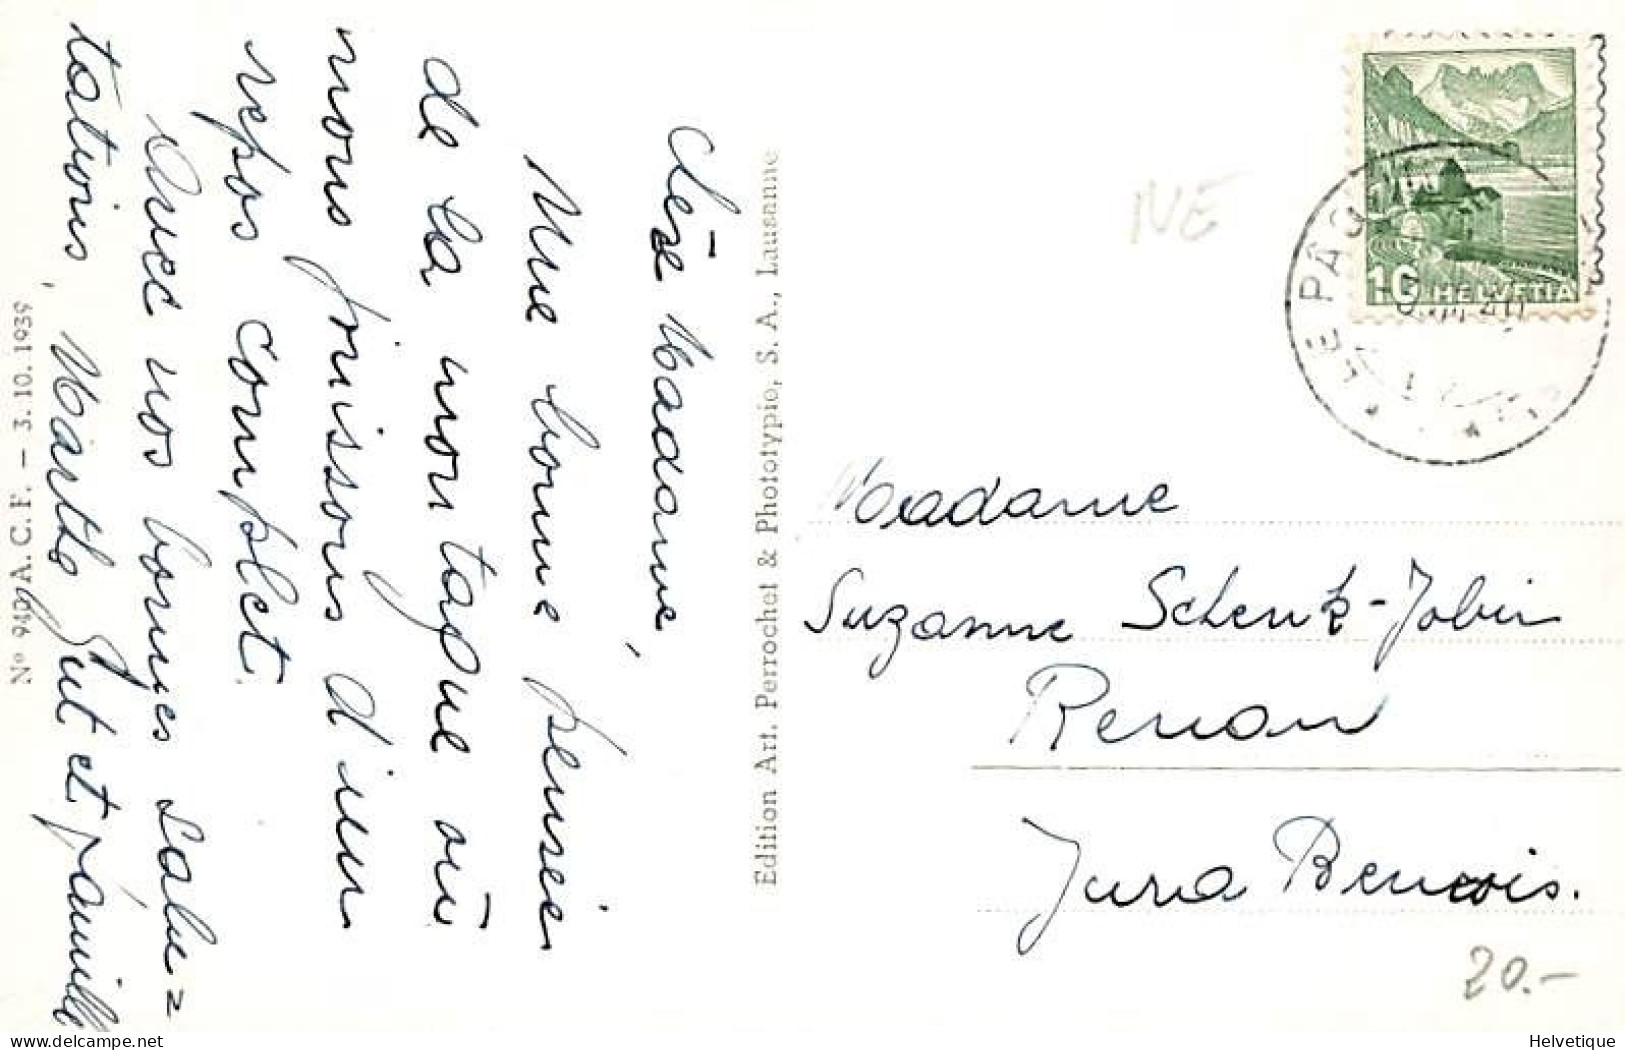 Chère Madame,
Une bonne pensée
de la montagne où
nous jouissons d'un
repos complet.
Avec nos bonnes salu=
tations,
Martha et famille
Nº 940 A. C. F. — 3. 10. 1939
Edition Art. Perrochet & Phototypie, S. A., Lausanne
NE
10 HELVETIA
LE PÂQ
Madame
Suzanne Schenk-Jobin
Renan
Jura Bernois.
20.-
delcampe.net
Helvetique